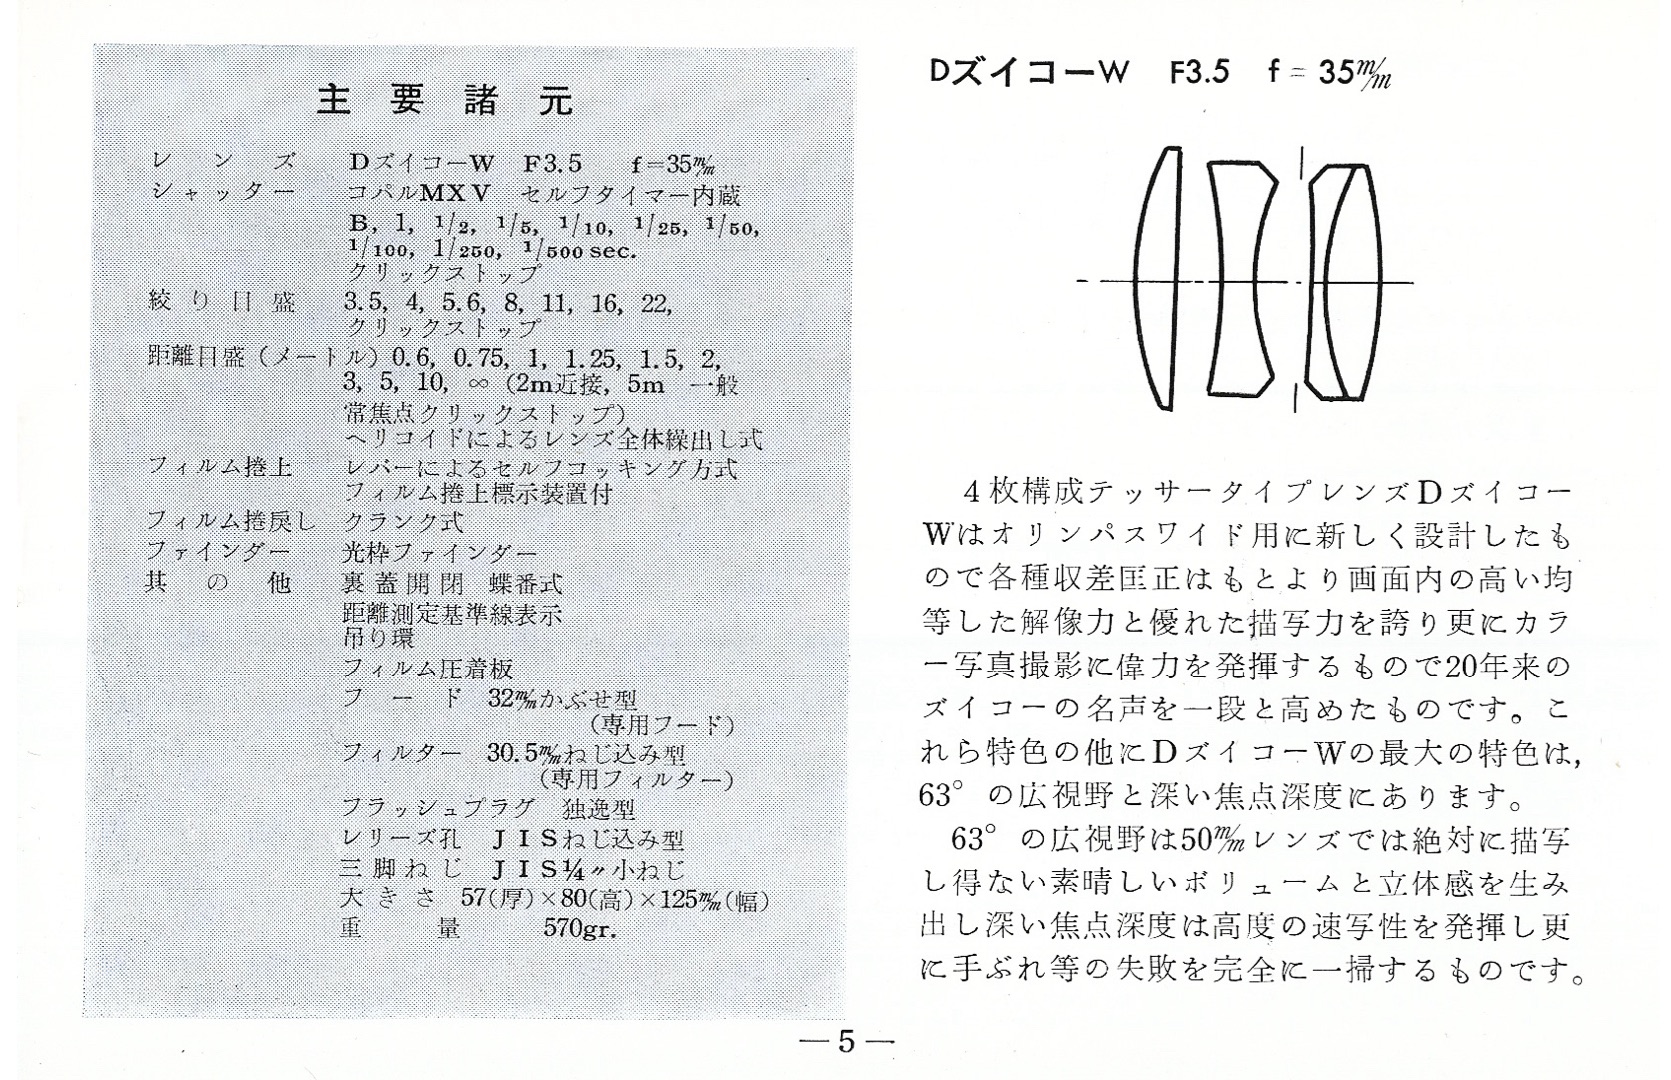 主要諸元
レンズ DズイコーW F3.5 f=35m/m
シャッター コパルMXV セルフタイマー内蔵
B, 1, 1/2, 1/5, 1/10, 1/25, 1/50,
1/100, 1/250, 1/500 sec.
クリックストップ
絞り目盛 3.5, 4, 5.6, 8, 11, 16, 22,
クリックストップ
距離目盛(メートル) 0.6, 0.75, 1, 1.25, 1.5, 2,
3, 5, 10, ∞ (2m近接, 5m 一般
常焦点クリックストップ)
ヘリコイドによるレンズ全体繰出し式
フィルム捲上 レバーによるセルフコッキング方式
フィルム捲上標示装置付
フィルム捲戻し クランク式
ファインダー 光枠ファインダー
其の他 裏蓋開閉 蝶番式
距離測定基準線表示
吊り環
フィルム圧着板
フード 32m/mかぶせ型
(専用フード)
フィルター 30.5m/mねじ込み型
(専用フィルター)
フラッシュプラグ 独逸型
レリーズ孔 JISねじ込み型
三脚ねじ JIS1/4〃小ねじ
大きさ 57(厚)×80(高)×125m/m(幅)
重量 570gr.
DズイコーW F3.5 f=35m/m
4枚構成テッサータイプレンズDズイコー
Wはオリンパスワイド用に新しく設計したも
ので各種収差匡正はもとより画面内の高い均
等した解像力と優れた描写力を誇り更にカラ
ー写真撮影に偉力を発揮するもので20年来の
ズイコーの名声を一段と高めたものです。こ
れら特色の他にDズイコーWの最大の特色は,
63°の広視野と深い焦点深度にあります。
63°の広視野は50m/mレンズでは絶対に描写
し得ない素晴しいボリュームと立体感を生み
出し深い焦点深度は高度の速写性を発揮し更
に手ぶれ等の失敗を完全に一掃するものです。
—5—